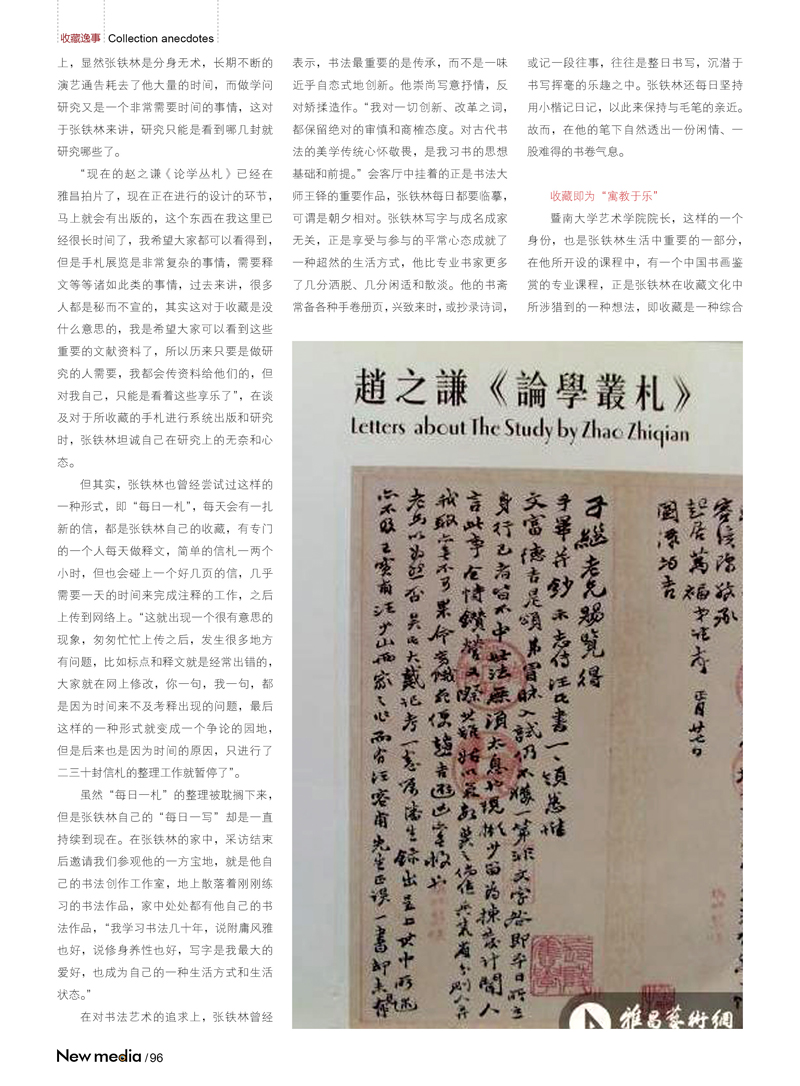 收藏逸事 Collection anecdotes
上，显然张铁林是分身无术，长期不断的
演艺通告耗去了他大量的时间，而做学问
研究又是一个非常需要时间的事情，这对
于张铁林来讲，研究只能是看到哪几封就
研究哪些了。
“现在的赵之谦《论学丛札》已经在
雅昌拍片了，现在正在进行的设计的环节，
马上就会有出版的，这个东西在我这里已
经很长时间了，我希望大家都可以看得到，
但是手札展览是非常复杂的事情，需要释
文等等诸如此类的事情，过去来讲，很多
人都是秘而不宣的，其实这对于收藏是没
什么意思的，我是希望大家可以看到这些
重要的文献资料了，所以历来只要是做研
究的人需要，我都会传资料给他们的，但
对我自己，只能是看着这些享乐了”，在谈
及对于所收藏的手札进行系统出版和研究
时，张铁林坦诚自己在研究上的无奈和心
态。
但其实，张铁林也曾经尝试过这样的
一种形式，即“每日一札”，每天会有一扎
新的信，都是张铁林自己的收藏，有专门
的一个人每天做释文，简单的信札一两个
小时，但也会碰上一个好几页的信，几乎
需要一天的时间来完成注释的工作，之后
上传到网络上。“这就出现一个很有意思的
现象，匆匆忙忙上传之后，发生很多地方
有问题，比如标点和释文就是经常出错的，
大家就在网上修改，你一句，我一句，都
是因为时间来不及考释出现的问题，最后
这样的一种形式就变成一个争论的园地，
但是后来也是因为时间的原因，只进行了
二三十封信札的整理工作就暂停了”。
虽然“每日一札”的整理被耽搁下来，
但是张铁林自己的“每日一写”却是一直
持续到现在。在张铁林的家中，采访结束
后邀请我们参观他的一方宝地，就是他自
己的书法创作工作室，地上散落着刚刚练
习的书法作品，家中处处都有他自己的书
法作品，“我学习书法几十年，说附庸风雅
也好，说修身养性也好，写字是我最大的
爱好，也成为自己的一种生活方式和生活
状态。”
在对书法艺术的追求上，张铁林曾经
表示，书法最重要的是传承，而不是一味
近乎自恋式地创新。他崇尚写意抒情，反
对矫揉造作。“我对一切创新、改革之词，
都保留绝对的审慎和商榷态度。对古代书
法的美学传统心怀敬畏，是我习书的思想
基础和前提。”会客厅中挂着的正是书法大
师王铎的重要作品，张铁林每日都要临摹，
可谓是朝夕相对。张铁林写字与成名成家
无关，正是享受与参与的平常心态成就了
一种超然的生活方式，他比专业书家更多
了几分洒脱、几分闲适和散淡。他的书斋
常备各种手卷册页，兴致来时，或抄录诗词，
或记一段往事，往往是整日书写，沉潜于
书写挥毫的乐趣之中。张铁林还每日坚持
用小楷记日记，以此来保持与毛笔的亲近。
故而，在他的笔下自然透出一份闲情、一
股难得的书卷气息。
收藏即为“寓教于乐”
暨南大学艺术学院院长，这样的一个
身份，也是张铁林生活中重要的一部分，
在他所开设的课程中，有一个中国书画鉴
赏的专业课程，正是张铁林在收藏文化中
所涉猎到的一种想法，即收藏是一种综合
趙之謙《論學叢札》
Letters about The Study by Zhao Zhiqian
起居萬福
正月廿七日
子繼老兄賜覽得
雅昌藝術網
New media /96